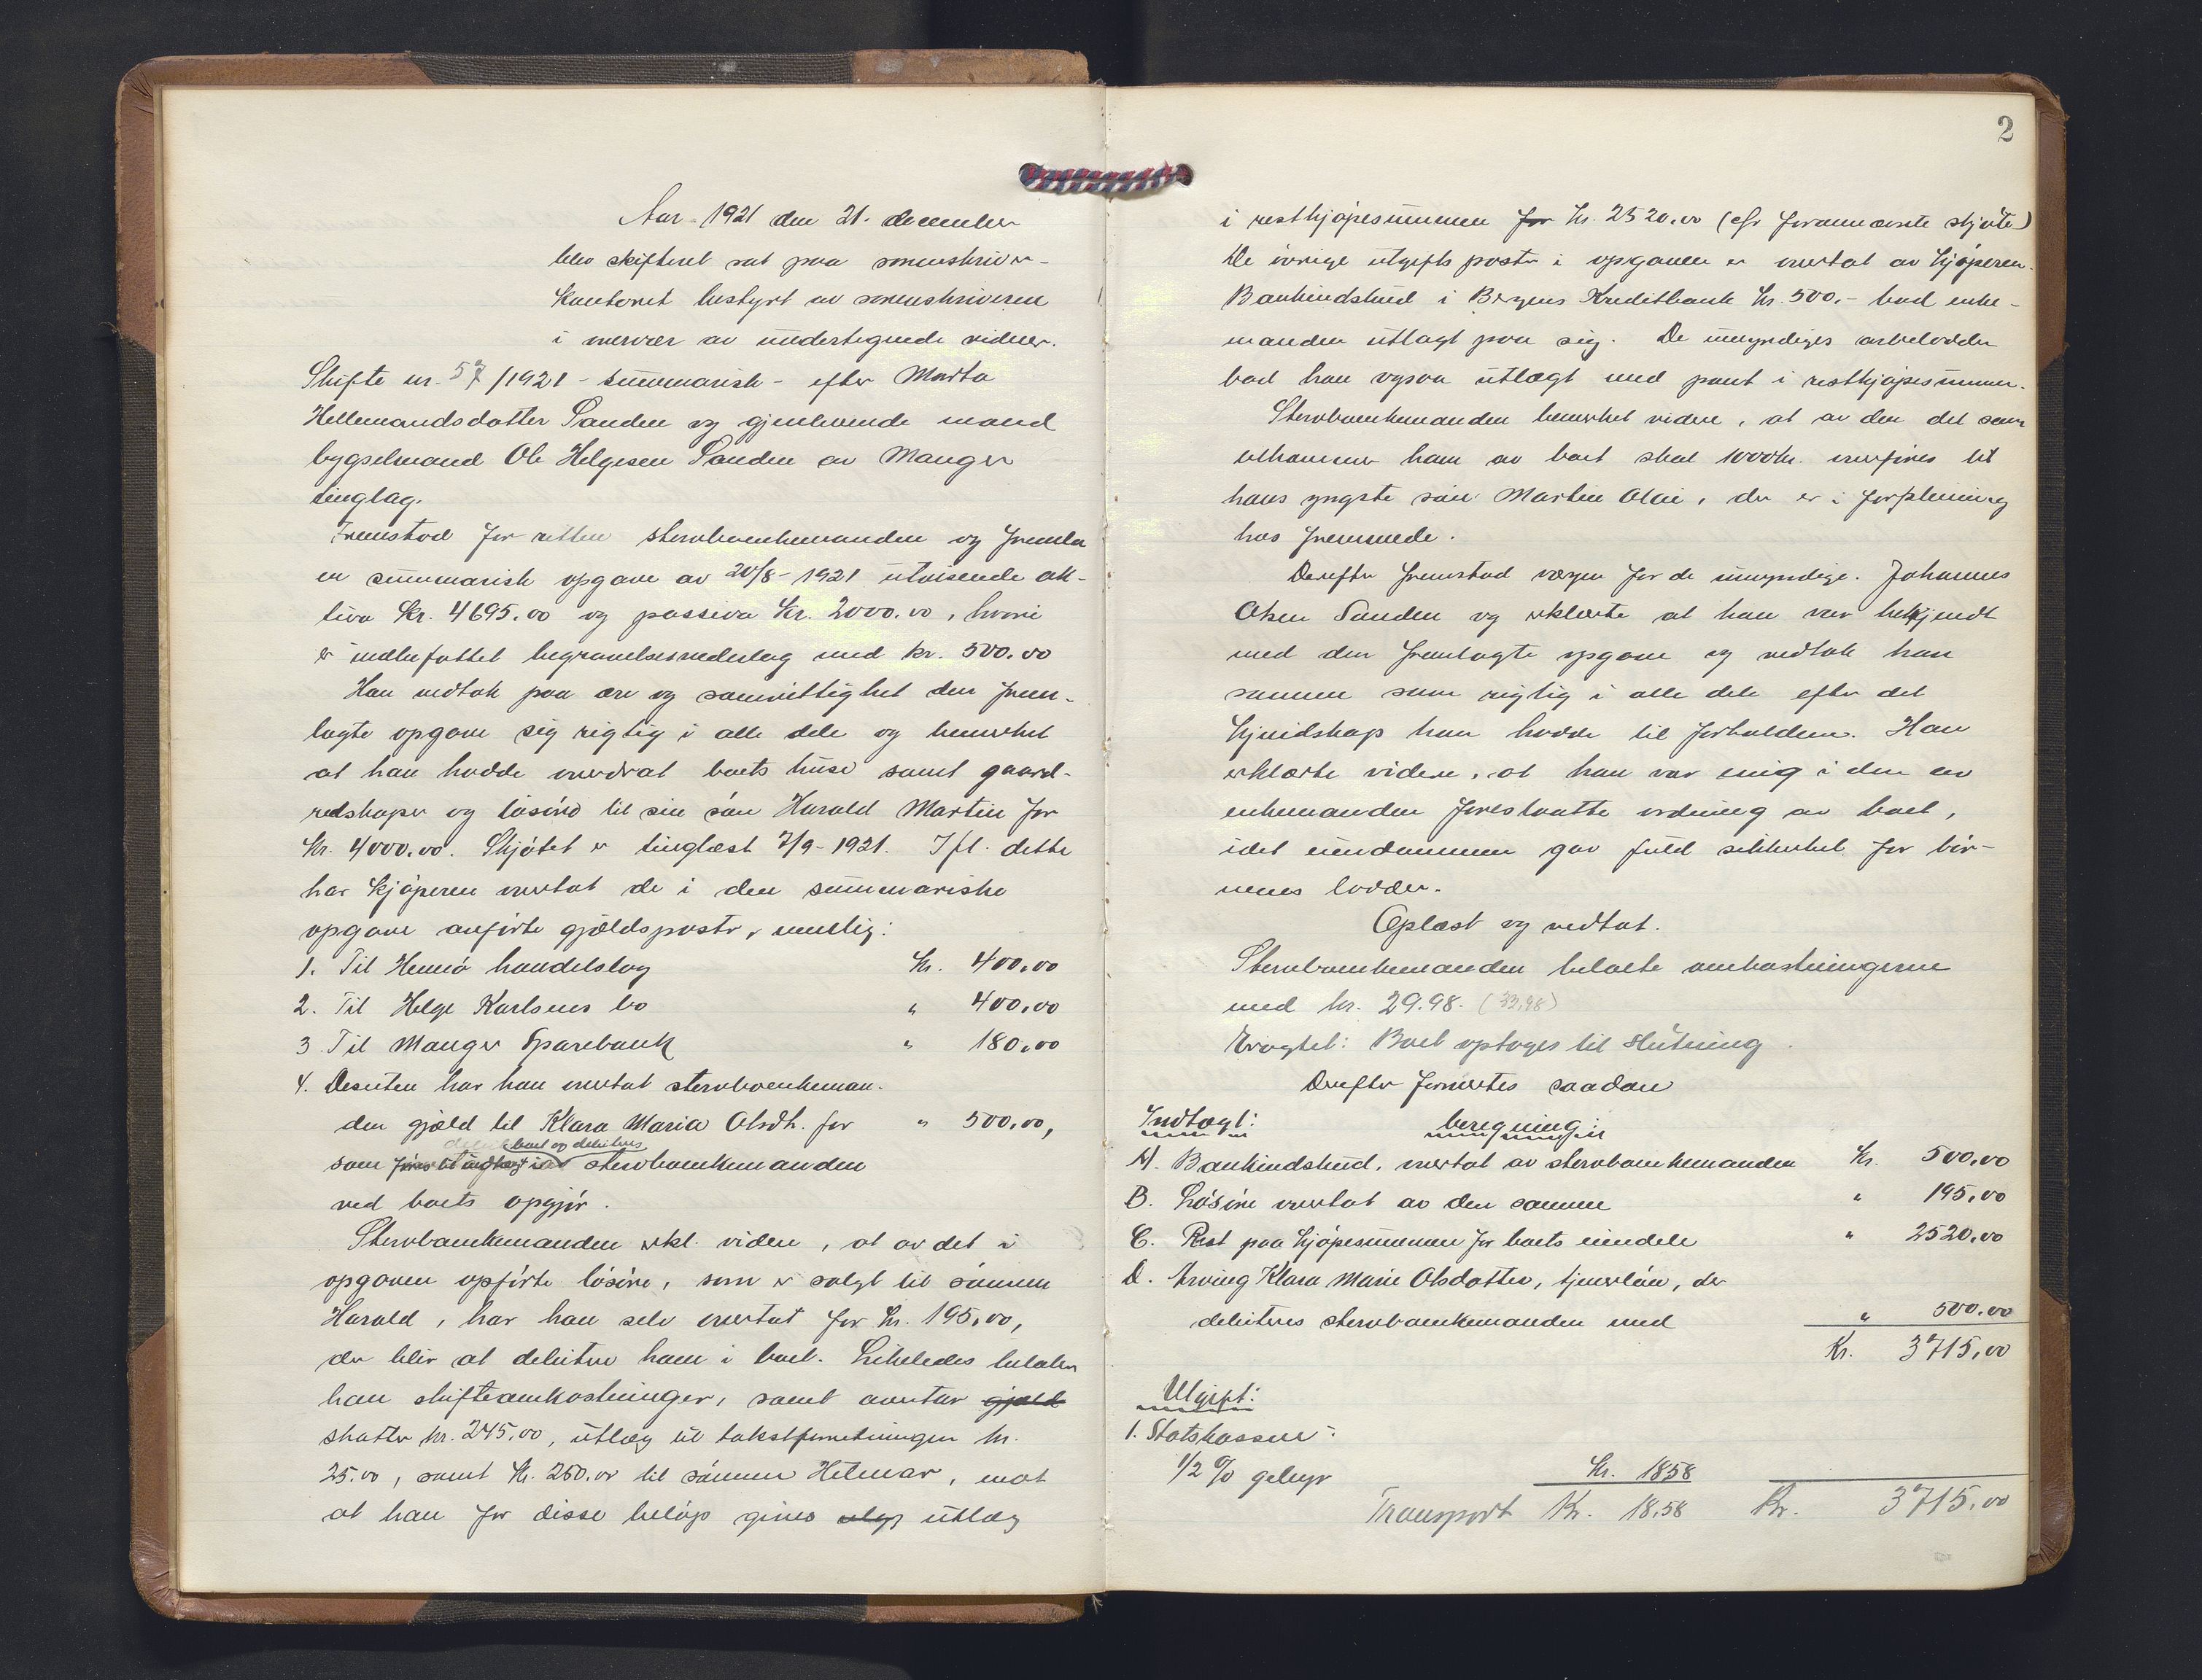 Aar 1921 den 21. december
blev skifteret sat paa sorenskriver-
kontoret bestyrt av sorenskriveren
i nærvær av undertegnede vidner.
Skifte nr. 57/1921 - summarisk - efter Marta
Hellemandsdatter Sanden og gjenlevende mand
bygselmand Ole Helgesen Sanden av Manger
tinglag.
Fremstod for retten stervboenkemanden og fremla
en summarisk opgave av 20/8-1921 utvisende ak-
tiva kr. 4695.00 og passiva kr. 2000.00, hvori
er indbefattet begravelsesvederlag med kr. 500.00
Han vedtok paa ære og samvittighet den frem-
lagte opgave sig rigtig i alle dele og bemerket
at han hadde overdrat boets huse samt gaard-
redskaper og løsøre til sin søn Harald Martin for
kr. 4000.00. Skjøtet er tinglæst 7/9-1921. Ifl. dette
har kjøperen overtat de i den summariske
opgave anførte gjældsposter, nemlig:
1. Til Hennø handelslag Kr. 400.00
2. Til Helge Karlsens bo " 400.00
3. Til Manger Sparebank " 180.00
4. Desuten har han overtat stervboenkeman-
den gjæld til Klara Maria Olsdt. for " 500.00,
boet og debiteres
som stervboenkemanden
ved boets opgjør.
Stervboenkemanden erkl. videre, at av det i
opgaven opførte løsøre, som er solgt til sønnen
Harald, har han selv overtat for kr. 195.00,
der blir at debitere ham i boet. Likeledes betaler
han skifteomkostninger, samt overtar gjæld
skatter kr. 245.00, utlæg til takstforretningen kr.
25.00, samt kr. 250.00 til sønnen Hilmar, mot
at han for disse beløp gives utlæg
2
i restkjøpesummen for kr. 2520.00 (cfr. forannævnte skjøte)
De øvrige utgiftsposter i opgaven er overtat av kjøperen.
Bankindskud i Bergens Kreditbank kr. 500.- bad enke-
manden utlagt paa sig. De umyndiges arvelodder
bad han ogsaa utlægt med pant i restkjøpesummen.
Stervboenkemanden bemerket videre, at av den del som
tilkommer ham av boet skal 1000 kr. overføres til
hans yngste søn: Martin Olai, der er i forpleining
hos fremmede.
Derefter fremstod vergen for de umyndige. Johannes
Olsen Sanden og erklærte at han var bekjendt
med den fremlagte opgave og vedtok han
samme som rigtig i alle dele efter det
kjendskap han hadde til forholdene. Han
erklærte videre, at han var enig i den av
enkemanden foreslaatte ordning av boet,
idet eiendommen gav fuld sikkerhet for bør-
nenes lodder.
Oplæst og vedtat.
Stervboenkemanden betalte omkostningerne
med kr. 29.98. (32.98)
Eragtet: Boet optages til slutning.
Derefter forrettes saadan
Indtægt: beregning:
A. Bankindskud, overtat av stervboenkemanden Kr. 500.00
B. Løsøre overtat av den samme " 195.00
C. Rest paa kjøpesummen for boets eiendele " 2520.00
D. Arving Klara Marie Olsdatter, tjenerløn, der
debiteres stervboenkemanden med " 500.00
Kr. 3715.00
Utgift:
1. Statskassen:
1/2 % gebyr Kr. 18.58
Transport Kr. 18.58 Kr. 3715.00